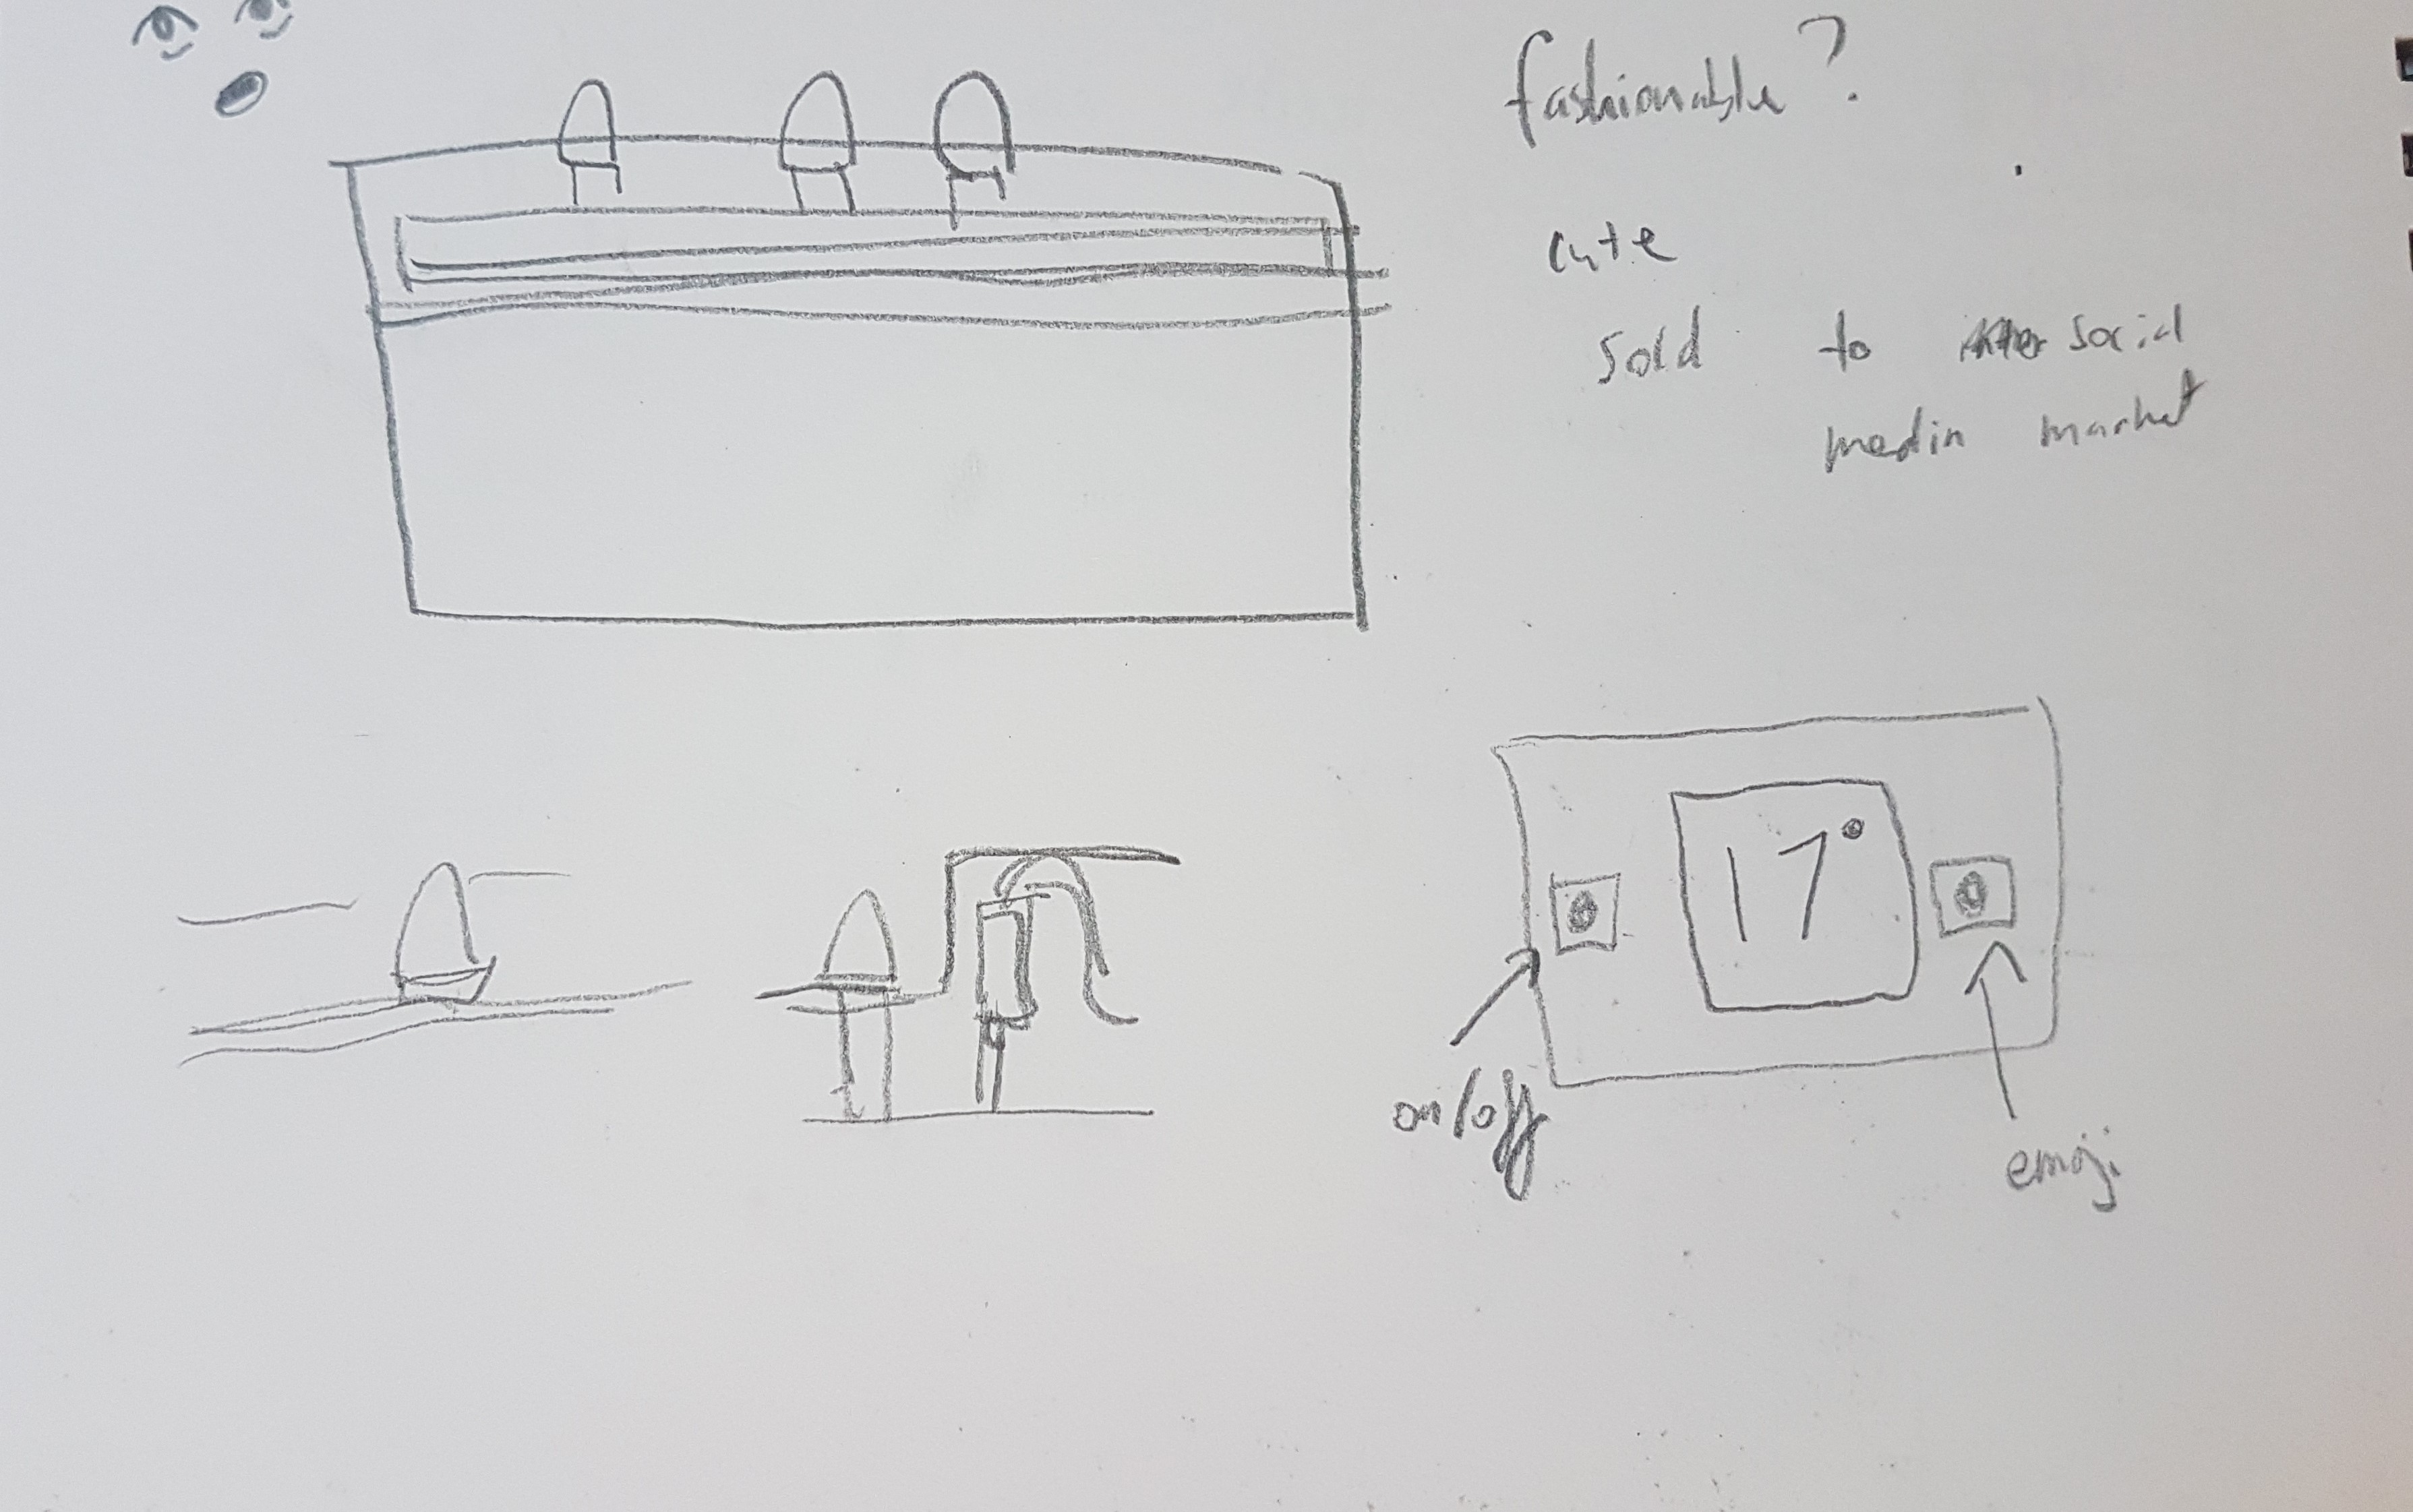 fashionable?
cute
sold to social
media market
17°
on/off
emoji